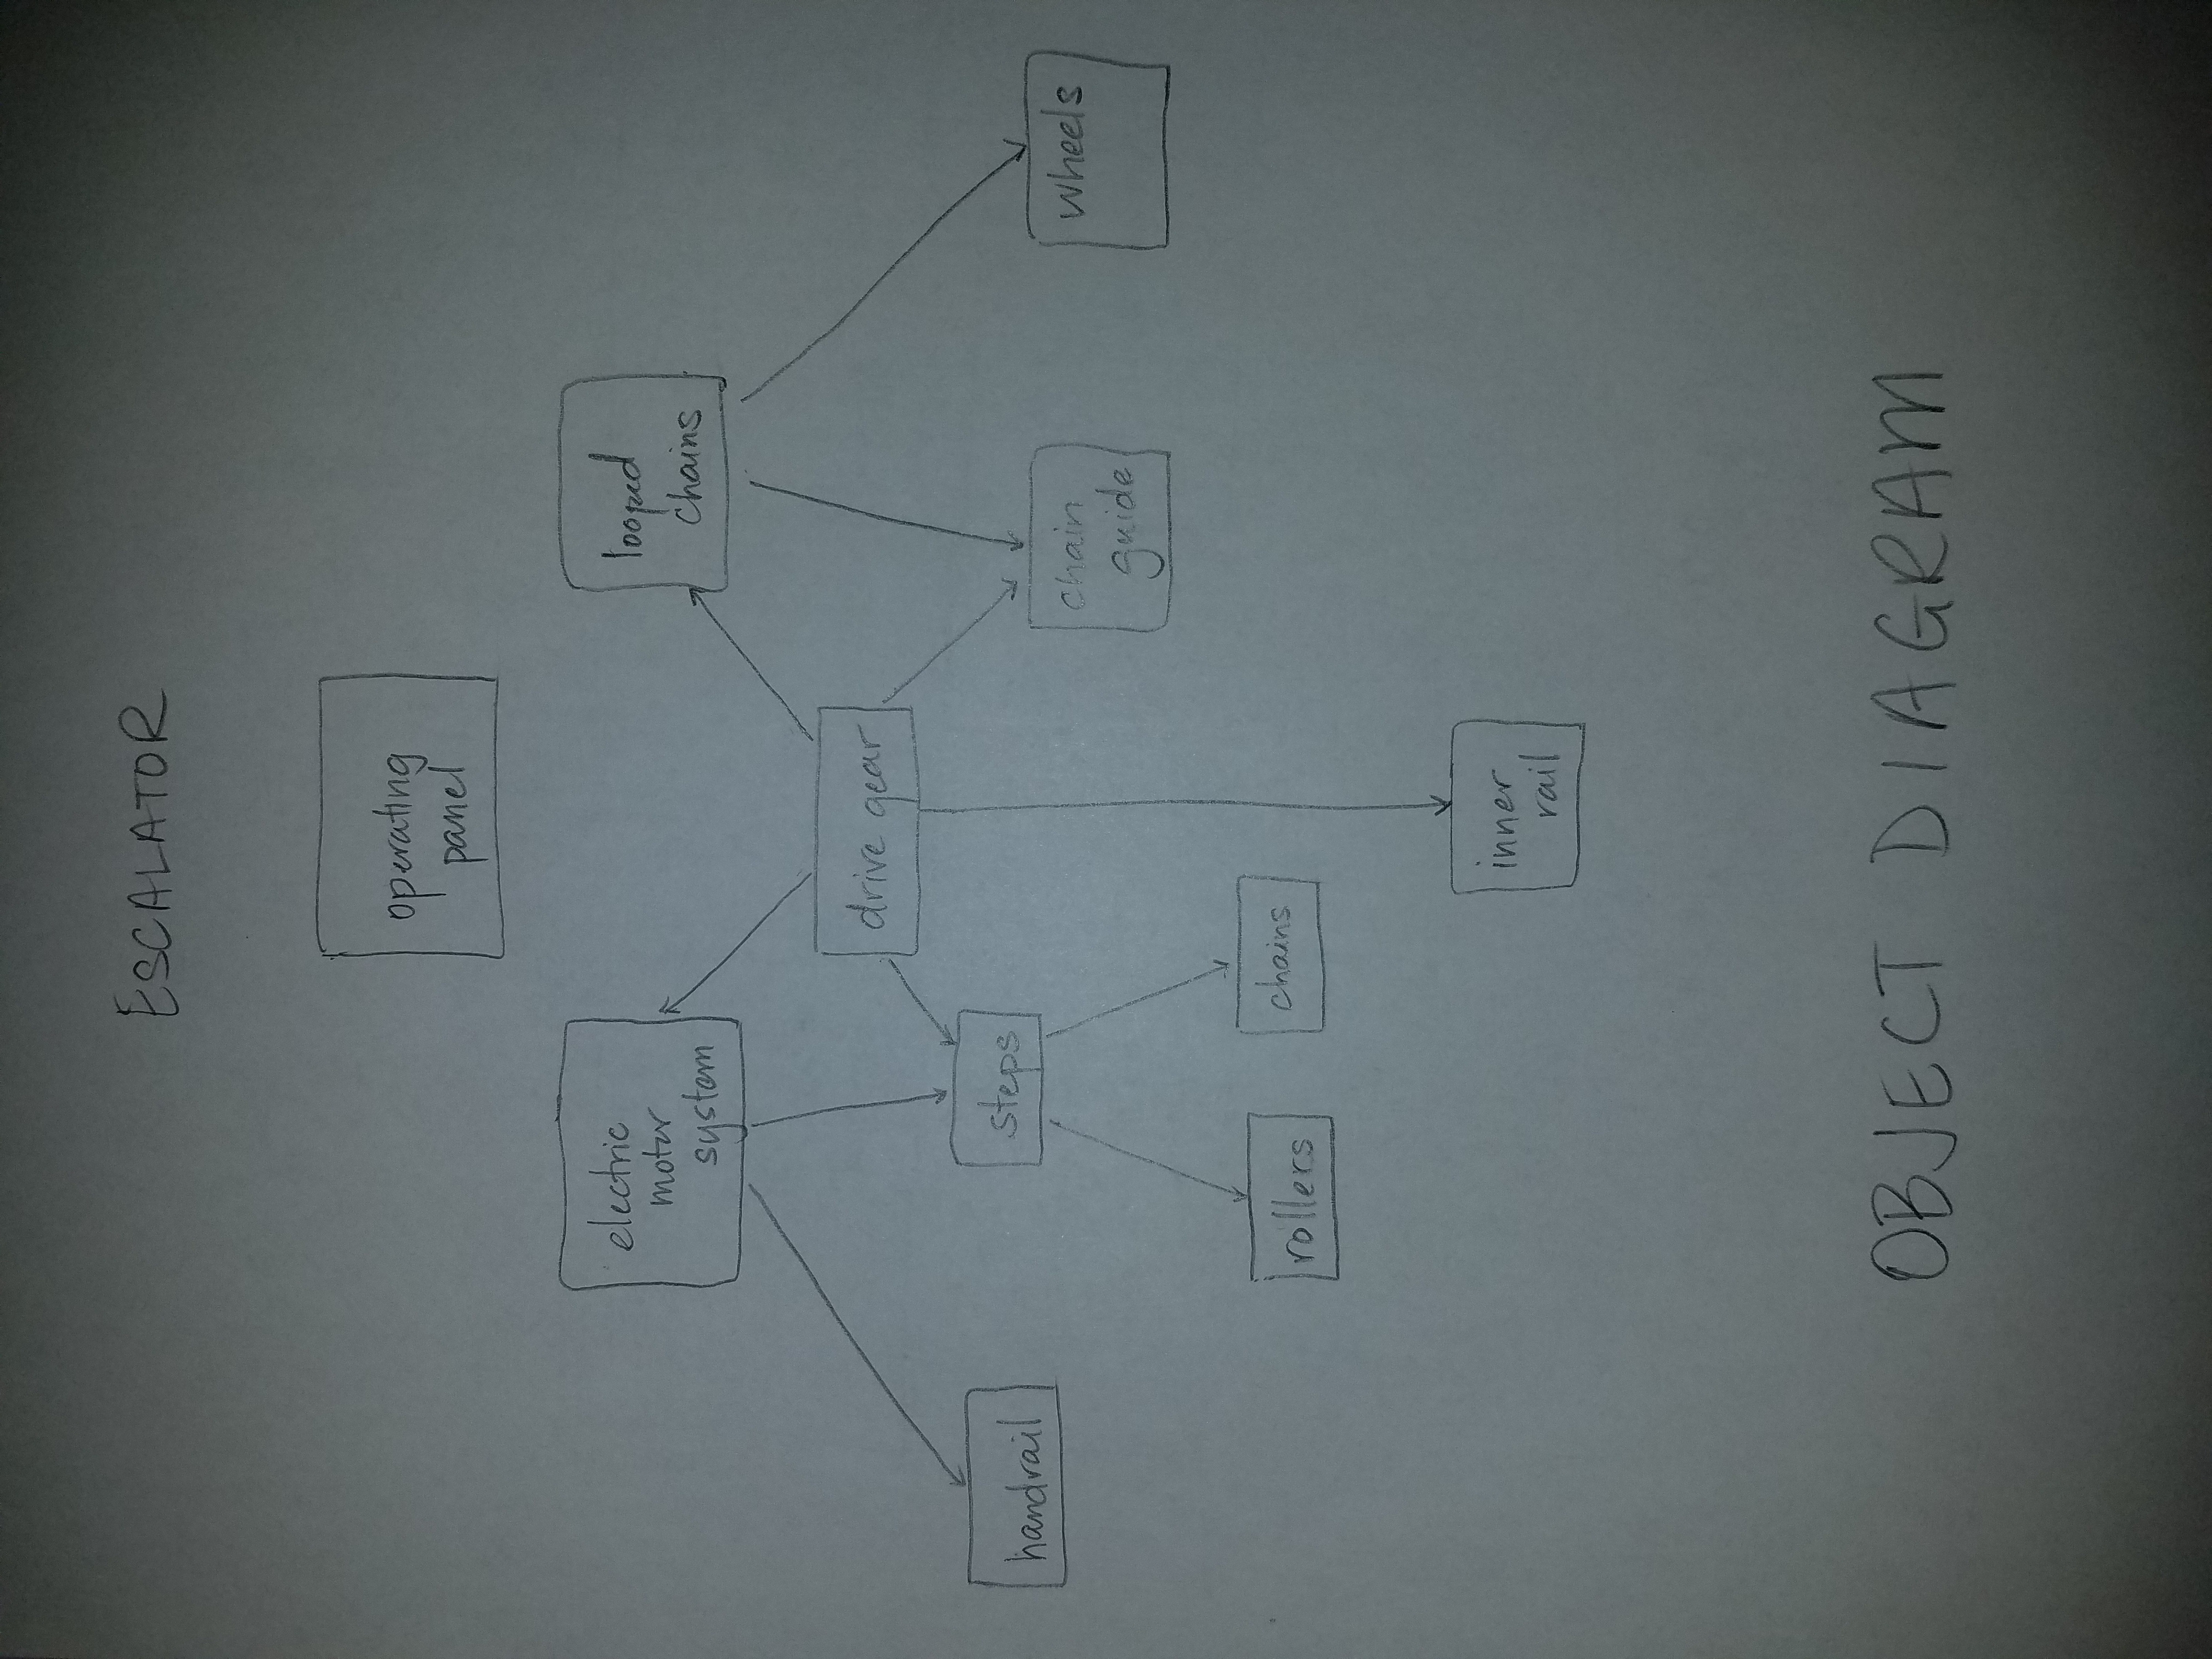 ESCALATOR
operating
panel
electric
motor
system
looped
chains
drive gear
handrail
steps
chain
guide
wheels
rollers
chains
inner
rail
OBJECT DIAGRAM